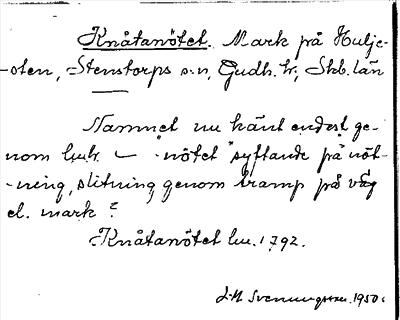 Knåtanötet. Mark på Hulje-
-oten, Stenstorps s:n, Gudh. hr, Skb. län
Namnet nu känt endast ge-
nom lmh. — "nötet" syftande på "nöt-
-ning, slitning genom tramp på väg
el. mark?
Knåtanötet lm. 1792.
S. Svenungsson 1950.